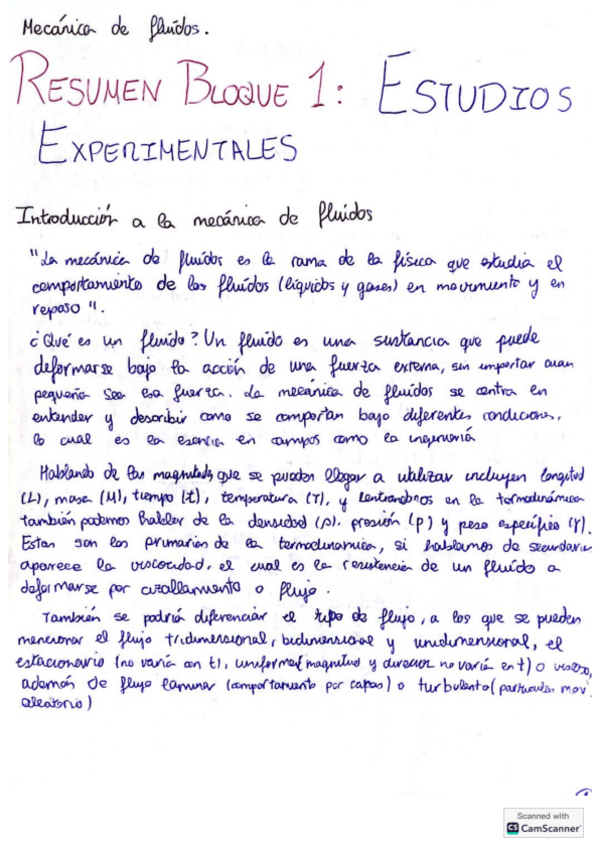 Mecánica de fluidos.
RESUMEN BLOQUE 1: ESTUDIOS
EXPERIMENTALES
Introducción a la mecánica de fluidos
"La mecánica de fluidos es la rama de la física que estudia el
comportamiento de los fluidos (líquidos y gases) en movimiento y en
reposo".
¿Qué es un fluido? Un fluido es una sustancia que puede
deformarse bajo la acción de una fuerza externa, sin importar cuan
pequeña sea esa fuerza. La mecánica de fluidos se centra en
entender y describir como se comportan bajo diferentes condiciones.
lo cual es la esencia en campos como la ingeniería
Hablando de las magnitudes que se pueden llegar a utilizar incluyen longitud
(L), masa (M), tiempo (t), temperatura (T), y centrandonos en la termodinámica
también podemos hablar de la densidad (ρ), presión (p) y peso específico (γ).
Estas son las primarias de la termodinamica, si hablamos de secundarias
aparece la viscosidad, el cual es la resistencia de un fluido a
deformarse por cizallamiento o flujo.
También se podría diferenciar el tipo de flujo, a los que se pueden
mencionar el flujo tridimensional, bidimensional y unidimensional, el
estacionario (no varía con t), uniforme (magnitud y direccion no varía en t) o viscoso,
además de flujo laminar (comportamiento por capas) o turbulento (particulas mov.
aleatorio)
Scanned with
CS CamScanner